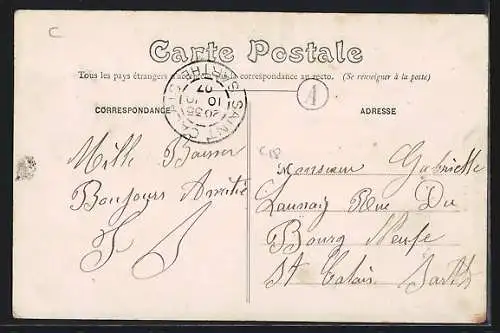 C
Carte Postale
Tous les pays étrangers n'acceptent pas la correspondance au recto. (Se renseigner à la poste)
SAINT CALAIS
SARTHE
20 35
10 -10
07
A
CORRESPONDANCE
ADRESSE
Mille Baiser
Bonjours Amitié
Monsieur Gabrielle
Launay Rue Du
Bourg Neufe
St Calais Sarthe